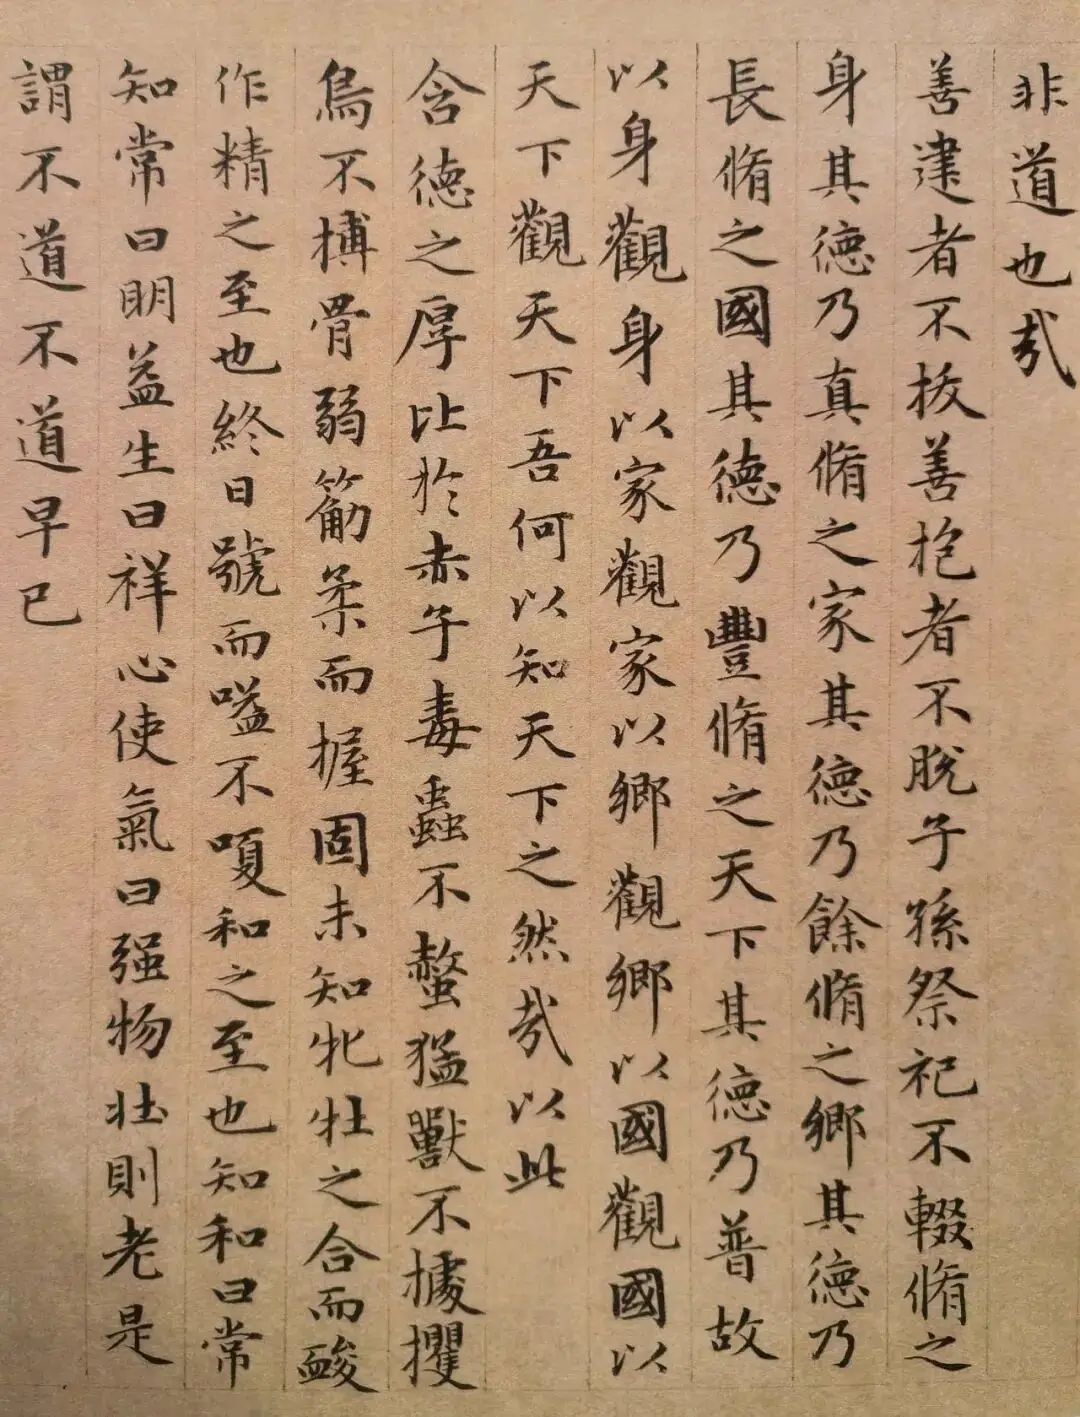 非道也哉
善建者不拔善抱者不脫子孫祭祀不輟脩之
身其德乃真脩之家其德乃餘脩之鄉其德乃
長脩之國其德乃豐脩之天下其德乃普故
以身觀身以家觀家以鄉觀鄉以國觀國以
天下觀天下吾何以知天下之然哉以此
含德之厚比於赤子毒蟲不螫猛獸不據攫
鳥不搏骨弱筋柔而握固未知牝牡之合而酸
作精之至也終日號而嗌不嗄和之至也知和曰常
知常曰明益生曰祥心使氣曰强物壯則老是
謂不道不道早已